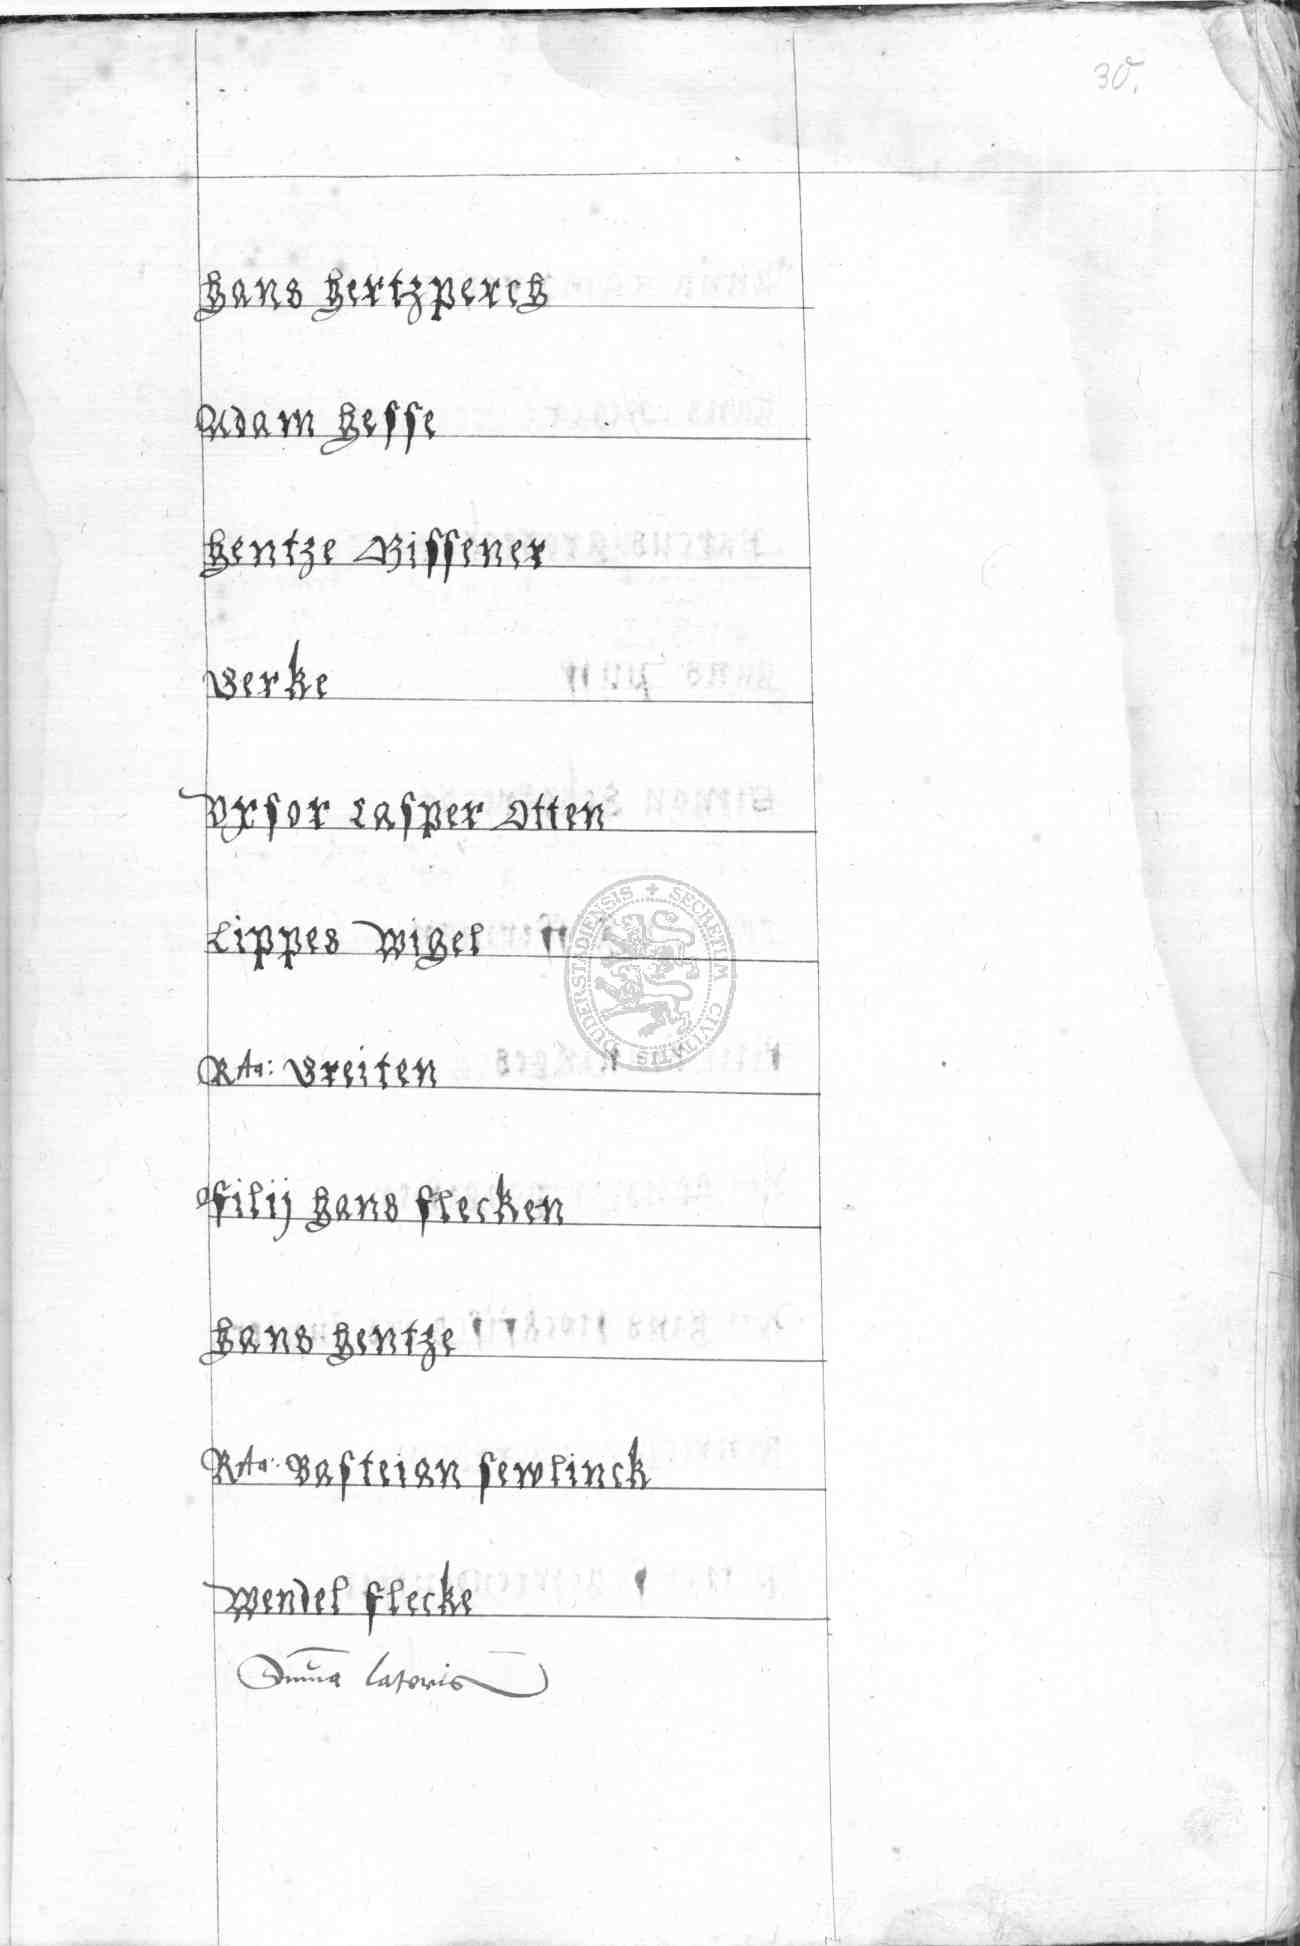 30.
Hans Hertzperch
Adam Hesse
Hentze Gissener
Berke
Vxsor Casper Otten
Lippes Wigel
SECRETUM CIVITATIS DUDERSTADIENSIS
Rta: Breiten
Filij Hans Flecken
Hans Hentze
Rta: Basteian Sewlinck
Wendel Flecke
Summa lateris